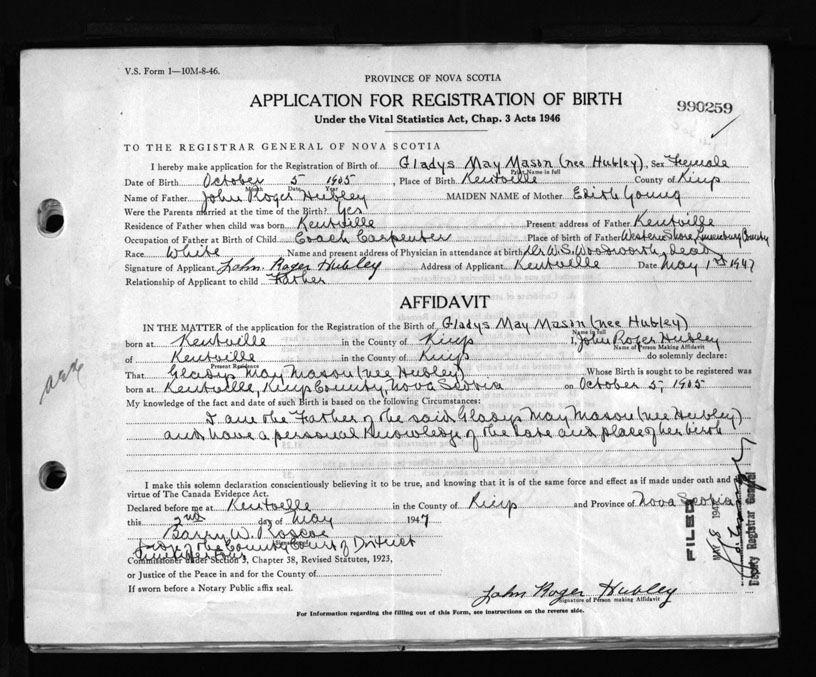 V.S. Form 1—10M-8-46.
PROVINCE OF NOVA SCOTIA
APPLICATION FOR REGISTRATION OF BIRTH
990259
Under the Vital Statistics Act, Chap. 3 Acts 1946
TO THE REGISTRAR GENERAL OF NOVA SCOTIA
I hereby make application for the Registration of Birth of Gladys May Mason (nee Hubley), Sex Female
Print Name in full
Date of Birth October 5 1905, Place of Birth Kentville County of Kings
Month Date Year
Name of Father John Roger Hubley MAIDEN NAME of Mother Edith Young
Were the Parents married at the time of the Birth? Yes
Residence of Father when child was born Kentville Present address of Father Kentville
Occupation of Father at Birth of Child Coach Carpenter Place of birth of Father Western Shore, Lunenburg County
Race White Name and present address of Physician in attendance at birth Dr. W.S. Woodworth, Dead
Signature of Applicant John Roger Hubley Address of Applicant Kentville Date May 1st 1947
Relationship of Applicant to child Father
AFFIDAVIT
IN THE MATTER of the application for the Registration of the Birth of Gladys May Mason (nee Hubley)
Name in full
born at Kentville in the County of Kings I, John Roger Hubley
Name of Person Making Affidavit
of Kentville in the County of Kings do solemnly declare:
Present Residence
That Gladys May Mason (nee Hubley) Whose Birth is sought to be registered was
born at Kentville, Kings County, Nova Scotia on October 5, 1905
My knowledge of the fact and date of such Birth is based on the following Circumstances:
I am the Father of the said Gladys May Mason (nee Hubley)
and have a personal knowledge of the date and place of her birth
I make this solemn declaration conscientiously believing it to be true, and knowing that it is of the same force and effect as if made under oath and by
virtue of The Canada Evidence Act.
Declared before me at Kentville in the County of Kings and Province of Nova Scotia
this 2nd day of May 1947
Barry W. Roscoe
of the County Court of District
Commissioner under Section 3, Chapter 38, Revised Statutes, 1923,
or Justice of the Peace in and for the County of
If sworn before a Notary Public affix seal.
John Roger Hubley
Signature of Person making Affidavit
For Information regarding the filling out of this Form, see instructions on the reverse side.
FILED
MAY 8 1947
Deputy Registrar General